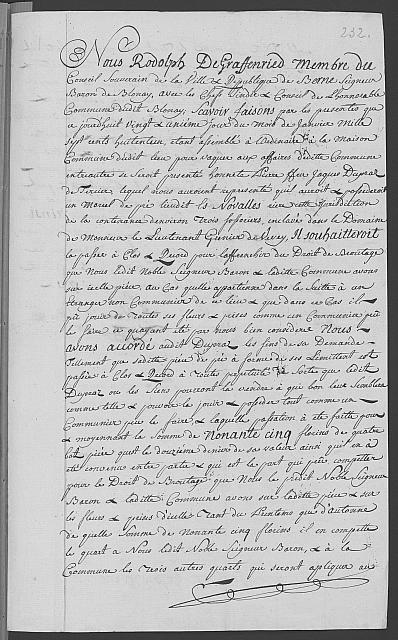 232.
Nous Rodolph DeGraffenried Membre du
Conseil Souverain de la Ville & Republique de Berne Seigneur
Baron de Blonay, avec les Chefs et Conseil de L'honnorable
Commune dudit Blonay Scavoir faisons par les presentes que
ce jourdhuit vingt & unieme jour du mois de Janvier Mille
Sept cents huitentun, etant assemblé à L'ordinaire à la Maison
Commune dudit lieu pour vaquer aux affaires de ladite Commune
entrautre se seroit presente honnete Pierre ffeu Jaques Dupraz
de Tercier lequel nous auroient representé quil auroit & possederoit
un Morcel de pré lieudit Es Novalles rière cette Jurisdiction
de la contenance denviron trois fossoriers, enclavé dans le Domaine
de Monsieur le Lieutenant Grenier de Vevey, Il souhaitteroit
la passer à Clos & Record pour laffranchir du Droit de Bocheage
que Nous ledit Noble Seigneur Baron & ladite Commune avons
sur icelle pièce, au Cas quelle appartienne dans la Suitte à un
étranger non Communier de ce lieu & que dans ce Cas il
pût jouir de toutes ses fleurs & prises comme un Communier peut
le faire, ce quayant été par nous bien consideré Nous
avons accordé audit Dupraz les fins de sa Demande
Tellement que sadite pièce de pré à forme de ses Limittes est
passée à Clos & Record à toutes perpetuités de Sorte que ledit
Dupraz ou les Siens pourront la vendre à qui bon leur Semblera
comme telle & pouvoir la jouir & posseder tout comme un
Communier peut le faire, & laquelle passation à été faite pour
& moyennant la Somme de Nonante cinq florins de quatre
batz pièce quest le douzieme denier de sa valeur ainsi quil en à
été convenue entre partie & qui est la part qui peut competter
pour le Droit de Bocheage que Nous le predit Noble Seigneur
Baron & ladite Commune avons sur ladite pièce & sur
les fleurs & prises d'icelle tant du Printems que d'automne
de quelle Somme de Nonante cinq florins il en compette
le quart à Nous ledit Noble Seigneur Baron, & à la
Commune les trois autres quarts qui seront appliquer au